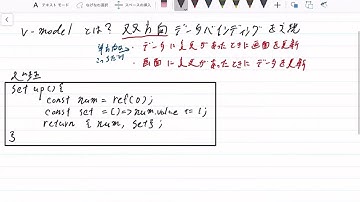 テキストモード なげなわ選択 スペースの挿入
v-model とは? 双方向 データバインディングを実現
単方向 ・データに変更があったときに画面を更新
・画面に変更があったときにデータを更新
setup(){
const num = ref(0);
const set = ()=>num.value += 1;
return { num, set};
}